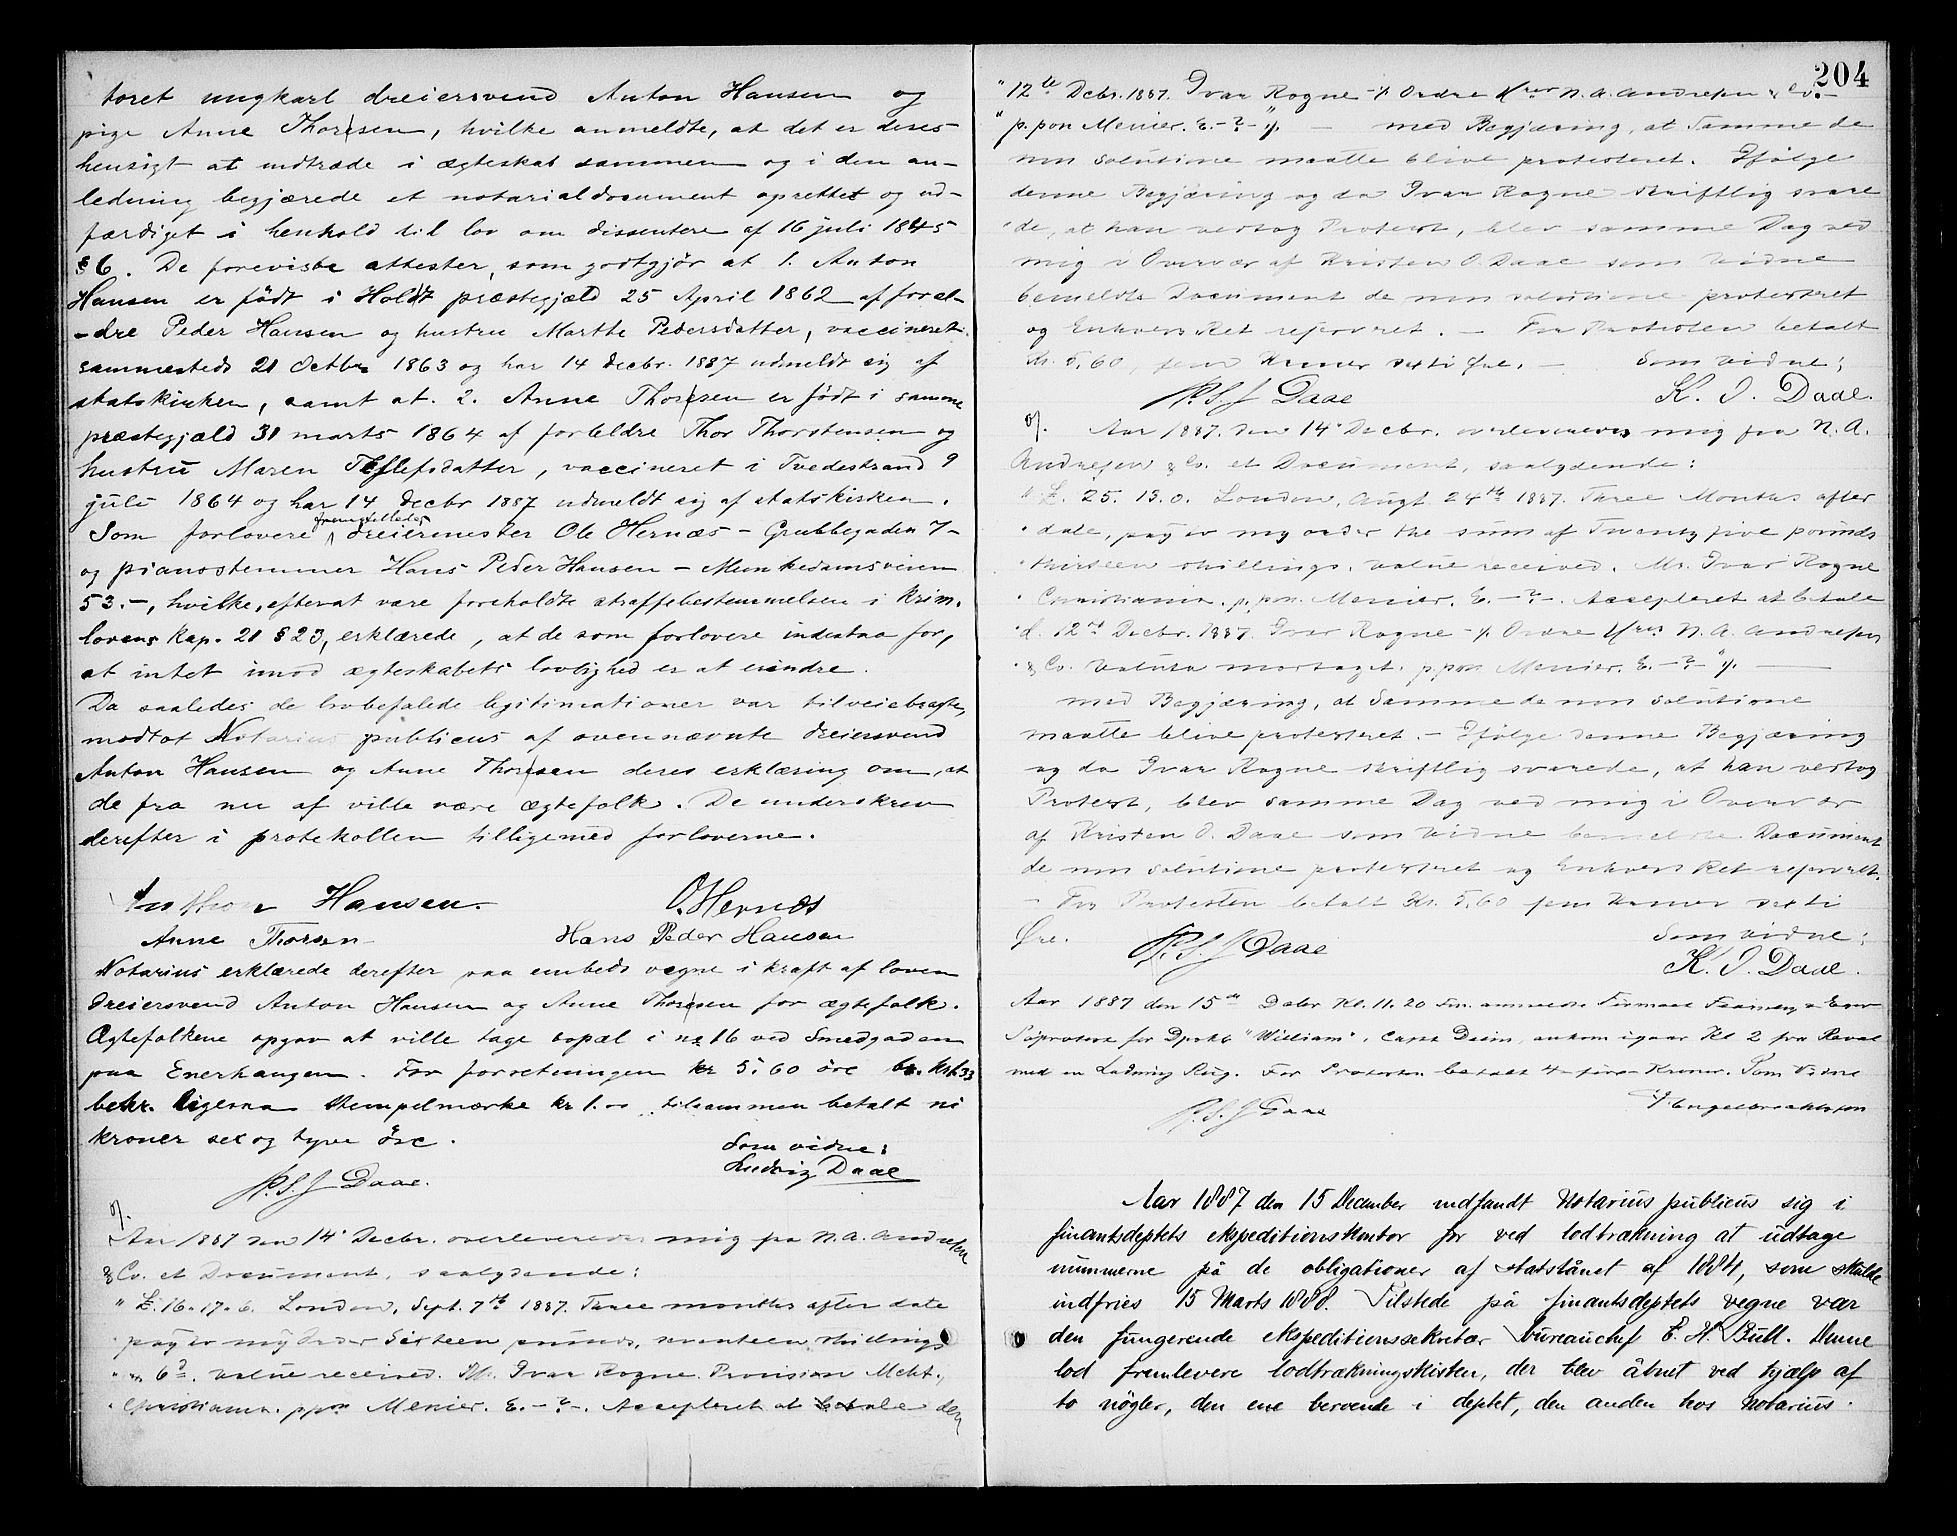 toret ungkarl dreiersvend Anton Hansen og
pige Anne Thoresen, hvilke anmeldte, at det er deres
hensigt at indtræde i ægteskab sammen og i den an-
ledning begjærede et notarialdocument oprettet og ud-
færdiget i henhold til lov om dissentere af 16 juli 1845
§ 6. De foreviste attester, som godtgjør at 1. Anton
Hansen er født i Holdt præstegjæld 25 April 1862 af foræl-
-dre Peder Hansen og hustru Marthe Pedersdatter, vaccineret
sammesteds 21 Octbr 1863 og har 14 decbr. 1887 udmeldt sig af
statskirken, samt at. 2. Anne Thoresen er født i samme
præstegjæld 31 marts 1864 af forældre Thor Thorstensen og
hustru Maren Tellefsdatter, vaccineret i Tvedestrand 9
juli 1864 og har 14 decbr 1887 udmeldt sig af statskirken.
Som forlovere fremstilledes dreiermester Ole Hernæs - Grubbegaden 7-
og pianostemmer Hans Peder Hansen - Munkedamsveien
53.-, hvilke, efterat være foreholdte straffebestemmelsen i Krim.
lovens Kap. 21 § 23, erklærede, at de som forlovere indestaa for,
at intet imod ægteskabets lovlighed er at erindre.
Da saaledes de lovbefalede legitimationer var tilveiebragte,
modtot Notarius publicus af ovennævnte dreiersvend
Anton Hansen og Anne Thoresen deres erklæring om, at
de fra nu af ville være ægtefolk. De underskrev
derefter i protokollen tilligemed forloverne.
Anthon Hansen. O. Hernæs
Anne Thorsen Hans Peder Hansen
Notarius erklærede derefter paa embeds vegne i kraft af loven
dreiersvend Anton Hansen og Anne Thoresen for ægtefolk.
Ægtefolkene opgav at ville tage bopæl i no 16 ved Smedgaden
paa Enerhaugen. For forretningen kr 5.60 øre
bekr. ligesaa stempelmærke kr 1.- tilsammen betalt ni
kroner sex og tyve Øre.
Som vidne:
P.S.J Daae. Ludvig Daae
Aar 1887 den 14' Decbr. overleveredes mig fra N. A. Andresen
& Co. et Document, saalydende:
" £. 16. 17. 6. London, Sept. 7th 1887. Three months after date
pay to my Order Sixteen pounds, seventeen shillings
" 6d. value received. Mr. Ivar Rogne. Provision Mcht.,
Christiania. ppon Menier. E. -?-. Accepteret at betale den
204
"12te Decbr. 1887. Ivar Rogne -/. Ordre Hrrer N. A. Andresen & Co.-
"p. pon Menier. E. -?-"/. - med Begjæring, at Samme de
non solutione maatte blive protesteret. Ifølge
denne Begjæring og da Ivar Rogne skriftlig svare
de, at han vedtog Protest, blev samme Dag ved
mig i Overvær af Kristen O. Daae som Vidne
bemeldte Document de non solutione protesteret
og Enhvers Ret reserveret. - For Protesten betalt
Kr. 5,60, fem Kroner sexti Øre. - Som Vidne:
P.S.J Daae K. O. Daae.
Aar 1887. den 14' Decbr. overleveredes mig fra N. A.
Andresen & Co. et Document, saalydende:
"£. 25. 13. 0. London, Augt. 24th 1887. Three Months after
date, pay to my order the sum of Twenty five pounds
thirteen shillings. value received. Mr. Ivar Rogne
Christiania. p. pon. Menier. E. -?-. Accepteret at betale
d. 12te Decbr. 1887. Ivar Rogne -/. Ordre Hrrer N. A. Andresen
& Co. Valuta modtaget. p. pon Menier. E. -?-"/.
med Begjæring, at Samme de non solutione
maatte blive protesteret. - Ifølge denne Begjæring
og da Ivar Rogne skriftlig svarede, at han vedtog
Protest, blev samme Dag ved mig i Overvær
af Kristen O. Daae som Vidne bemeldte Document
de non solutione protesteret og Enhvers Ret reserveret.
- For Protesten betalt Kr. 5,60 fem Kroner sexti
Øre. Som Vidne:
P.S.J Daae K. O. Daae.
Aar 1887 den 15de Decbr Kl. 11.20 Fm. anmeldte Firmaet
Søprotest for Dpskb "William", Capt. ankom igaar Kl 2 fra Reval
med en Ladning Rug. For Protesten betalt 4 - fire - Kroner. Som Vidne
P.S.J Daae Engelbrethsen
Aar 1887 den 15 December indfandt Notarius publicus sig i
finantsdeptets ekspeditionskontor for ved lodtrækning at udtage
nummerne på de obligationer af statslånet af 1884, som skulde
indfries 15 Marts 1888. Tilstede på finantsdeptets vegne var
den fungerende ekspeditionssekretær bureauchef E. H. Bull. Denne
lod fremlevere lodtrækningskisten, der blev åbnet ved hjælp af
to nøgler, den ene beroende i deptet, den anden hos Notarius.